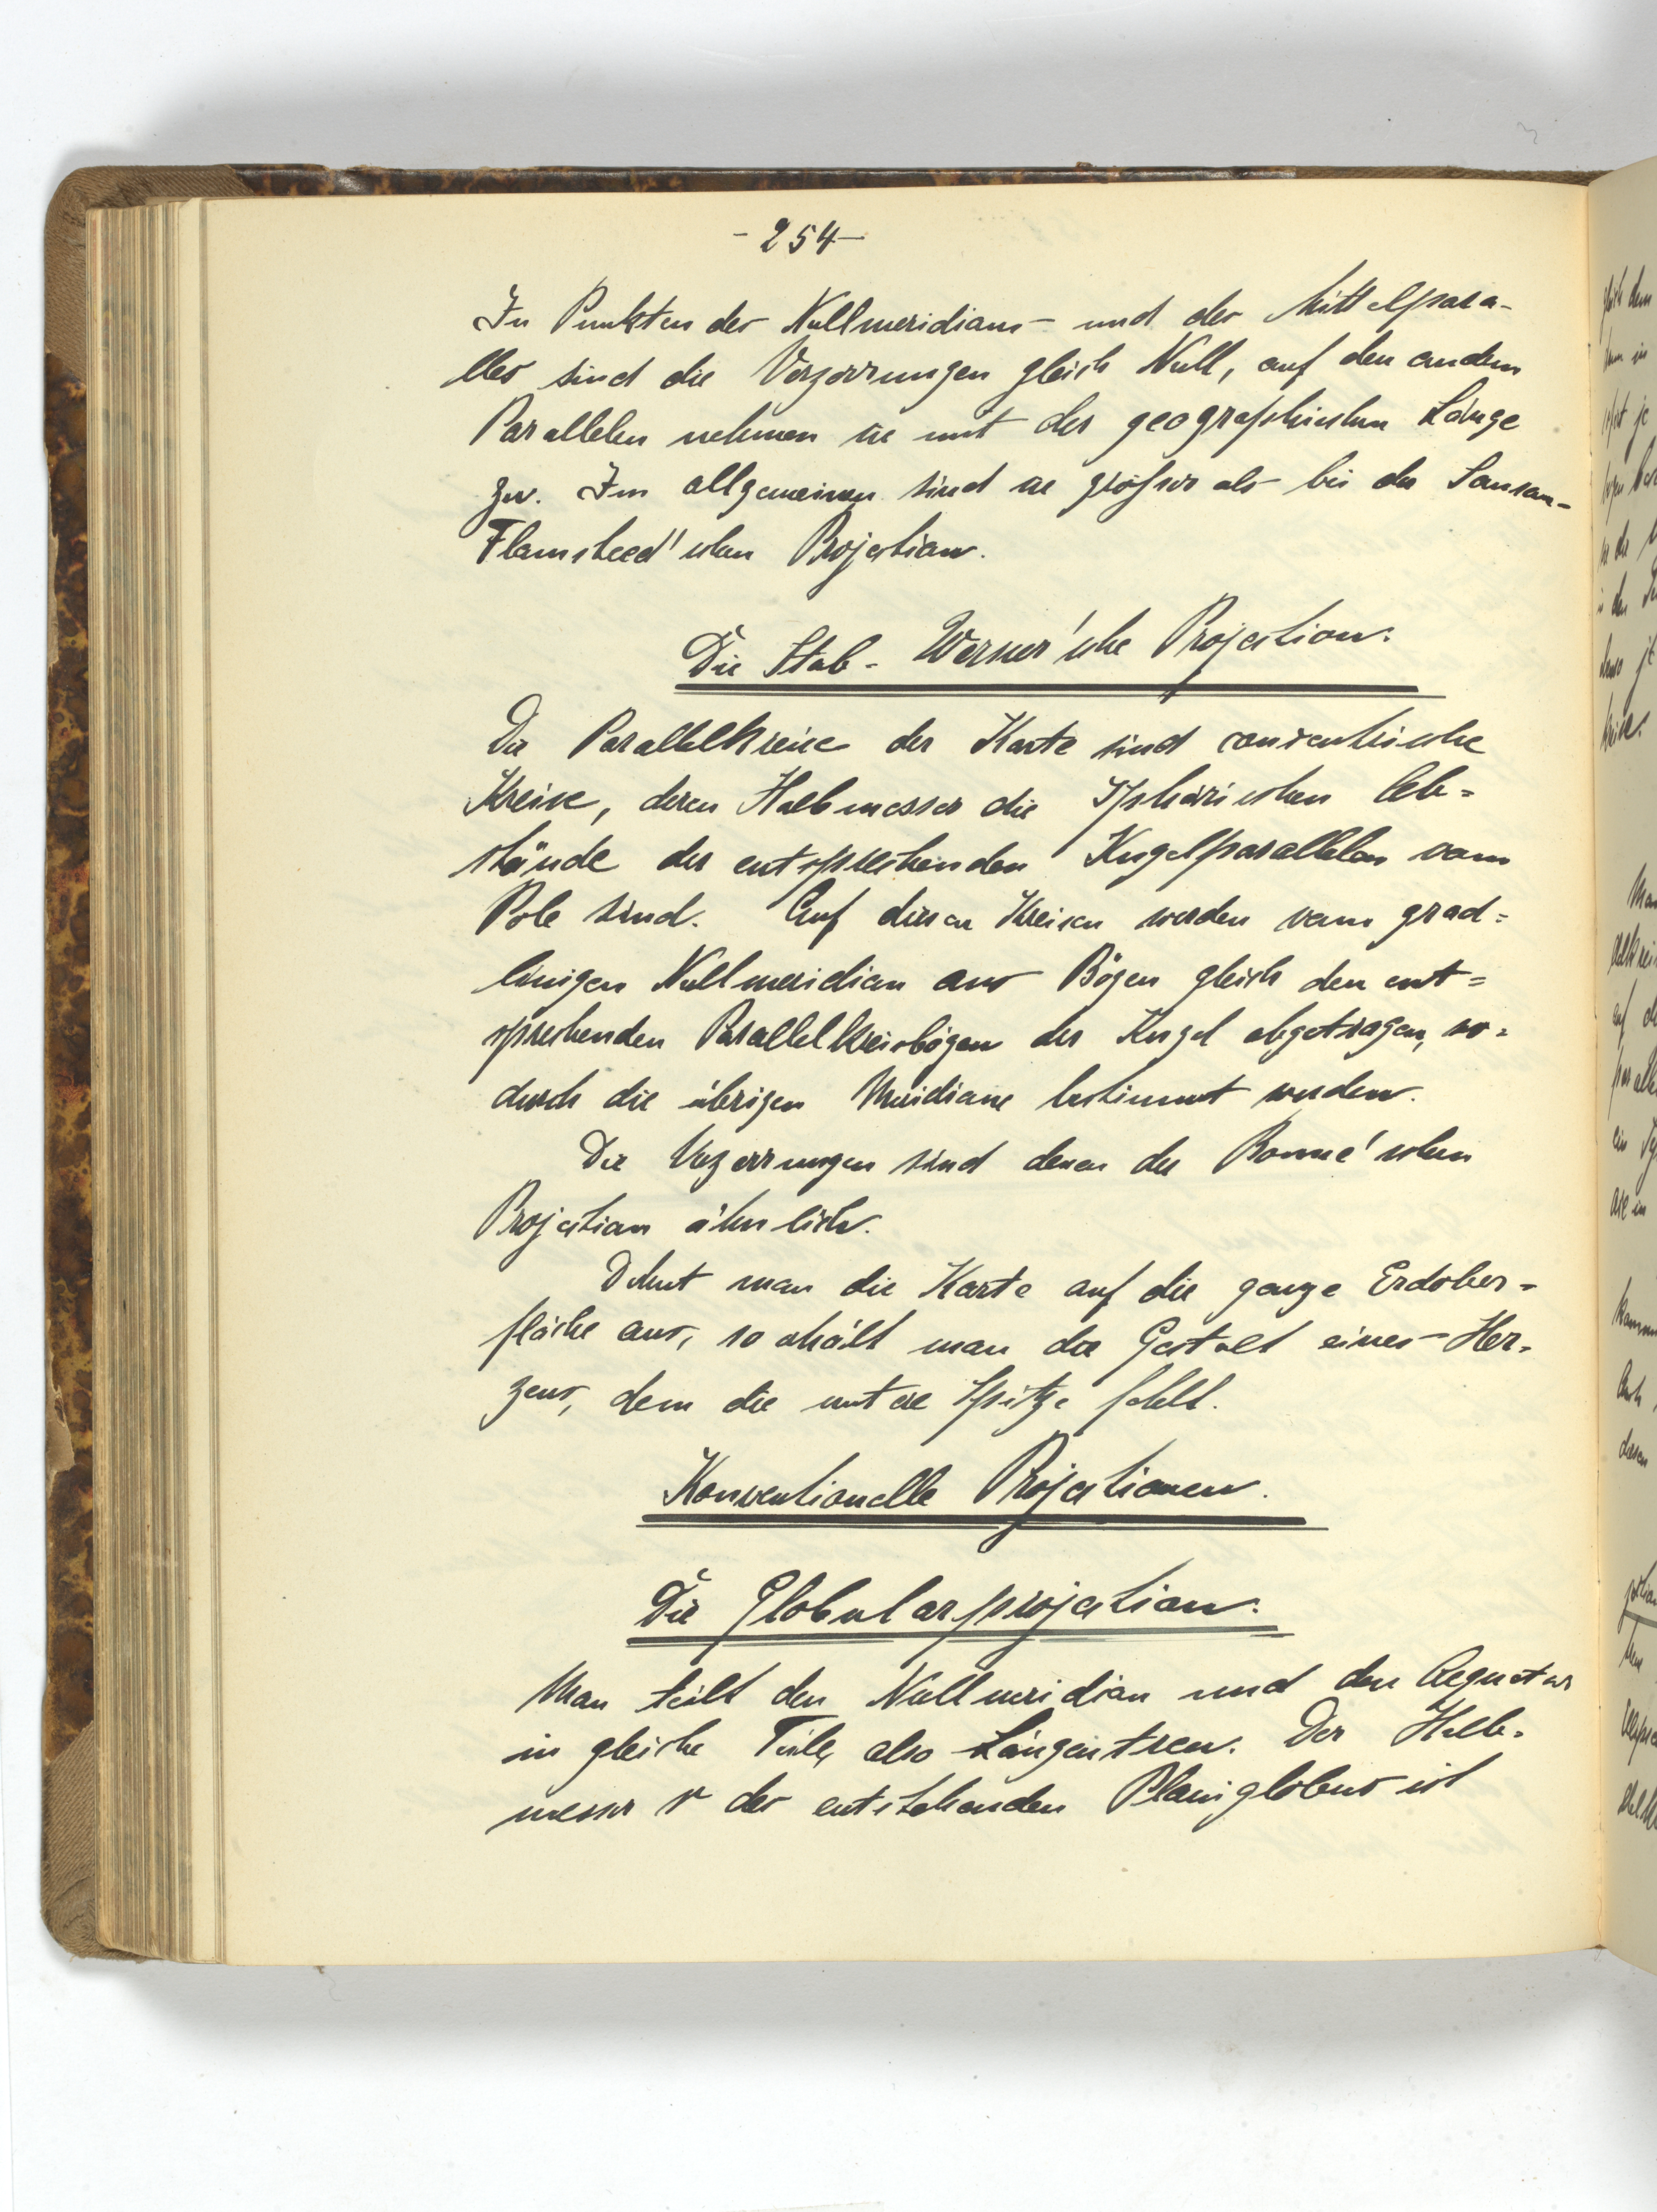 - 254 -
In Punkten des Nullmeridians und des Mittelpara-
lles sind die Verzerrungen gleich Null, auf den andern
Parallelen nehmen sie mit der geographischen Länge
zu. Im allgemeinen sind sie größer als bei der Sanson-
Flamsteed'schen Projection.
Die Stab-Werner'sche Projection.
Die Parallelkreise der Karte sind concentrische
Kreise, deren Halbmesser die sphärischen Ab=
stände der entsprechenden Kugelparallelen vom
Pole sind. Auf diesen Kreisen werden vom grad=
linigen Nullmeridian aus Bögen gleich den ent=
sprechenden Parallelkreisbögen der Kugel abgetragen, wo=
durch die übrigen Meridiane bestimmt werden.
Die Verzerrungen sind denen der Bonne'schen
Projection ähnlich.
Dehnt man die Karte auf die ganze Erdober=
fläche aus, so erhält man die Gestalt eines Her=
zens, dem die untere Spitze fehlt.
Konventionelle Projectionen.
Die Globularprojection.
Man teilt den Nullmeridian und den Aequator
in gleiche Teile, also Längentreu. Der Halb=
messer r des entstehenden Planiglobus ist